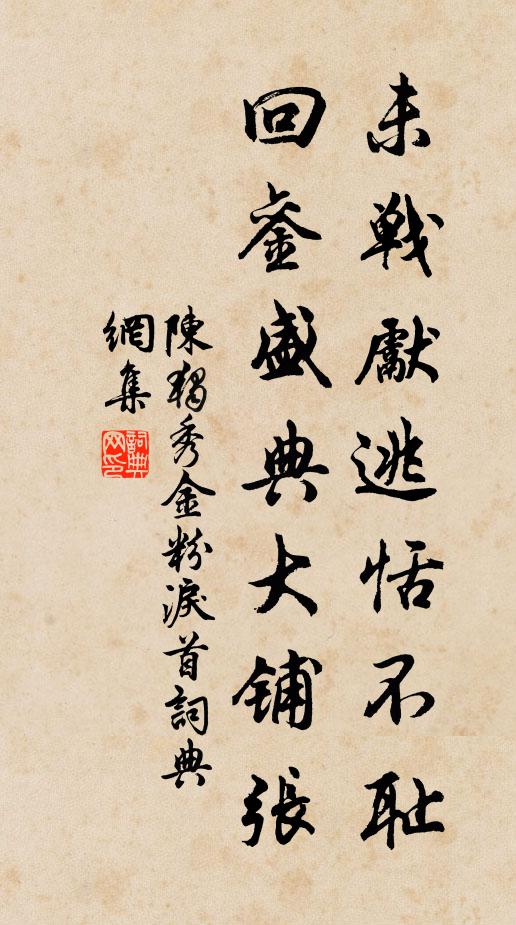 未戰獻逃恬不耻
回銮盛典大鋪張
陳獨秀金粉淚首詞典
網集
詞典
网印